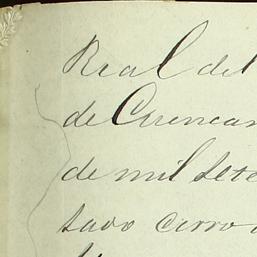 Real del
de Cuencam
de mil sete
sado cerro